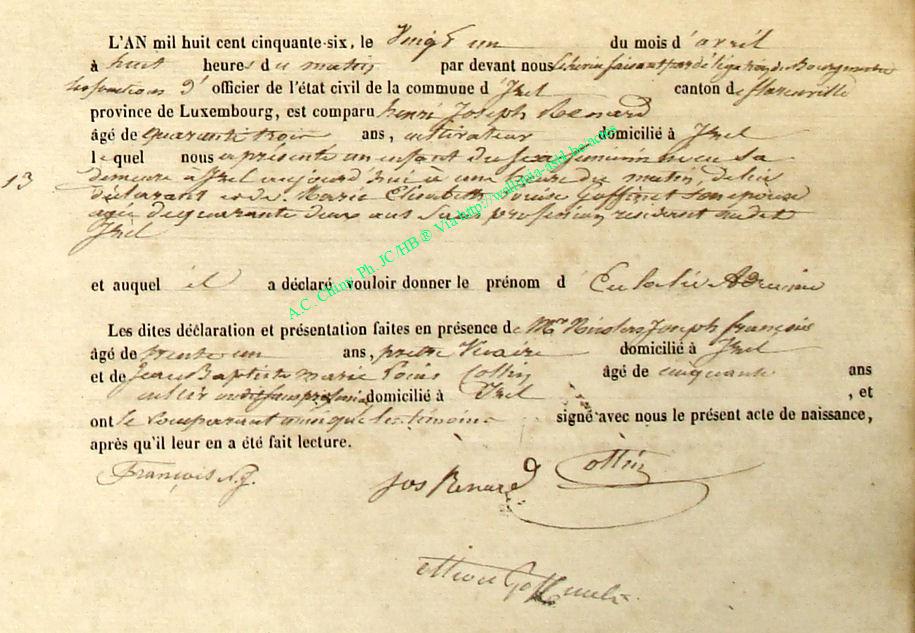 L'AN mil huit cent cinquante-six, le Vingt un du mois d'avril
à huit heures du matin par devant nous Echevin faisant par délégation du Bourgmestre
les fonctions d'officier de l'état civil de la commune d'Izel canton de florenville
province de Luxembourg, est comparu henri Joseph Renard
âgé de quarante trois ans, cultivateur domicilié à Izel
lequel nous a présenté un enfant du sexe feminin né en sa
13 demeure à Izel aujourd'hui à une heure du matin, de lui
déclarant et de Marie Elisabeth Louise Goffinet son epouse
agée de quarante deux ans sans profession residant audit
Izel
et auquel il a déclaré vouloir donner le prénom d'Eulalie
Les dites déclaration et présentation faites en présence de Mr Nicolas Joseph françois
âgé de trente un ans, pretre Vicaire domicilié à Izel
et de Jean Baptiste Marie Louis Collin âgé de cinquante ans
domicilié à Izel, et
ont le comparant ainsi que les témoins signé avec nous le présent acte de naissance,
après qu'il leur en a été fait lecture.
François N.J. Jos Renard Collin
A.C. Chiny Ph. JC/HB ® Via http://wallonia-asbl.be.actes